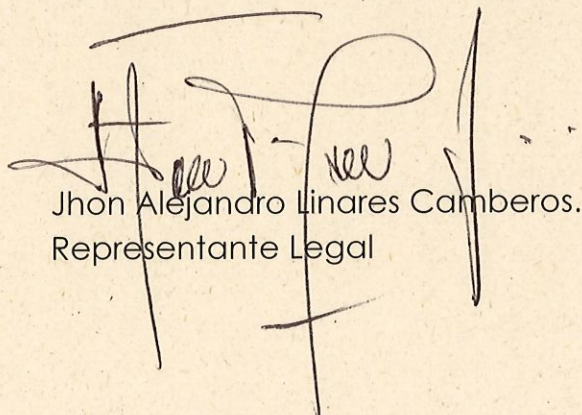 Jhon Alejandro Linares Camberos.
Representante Legal